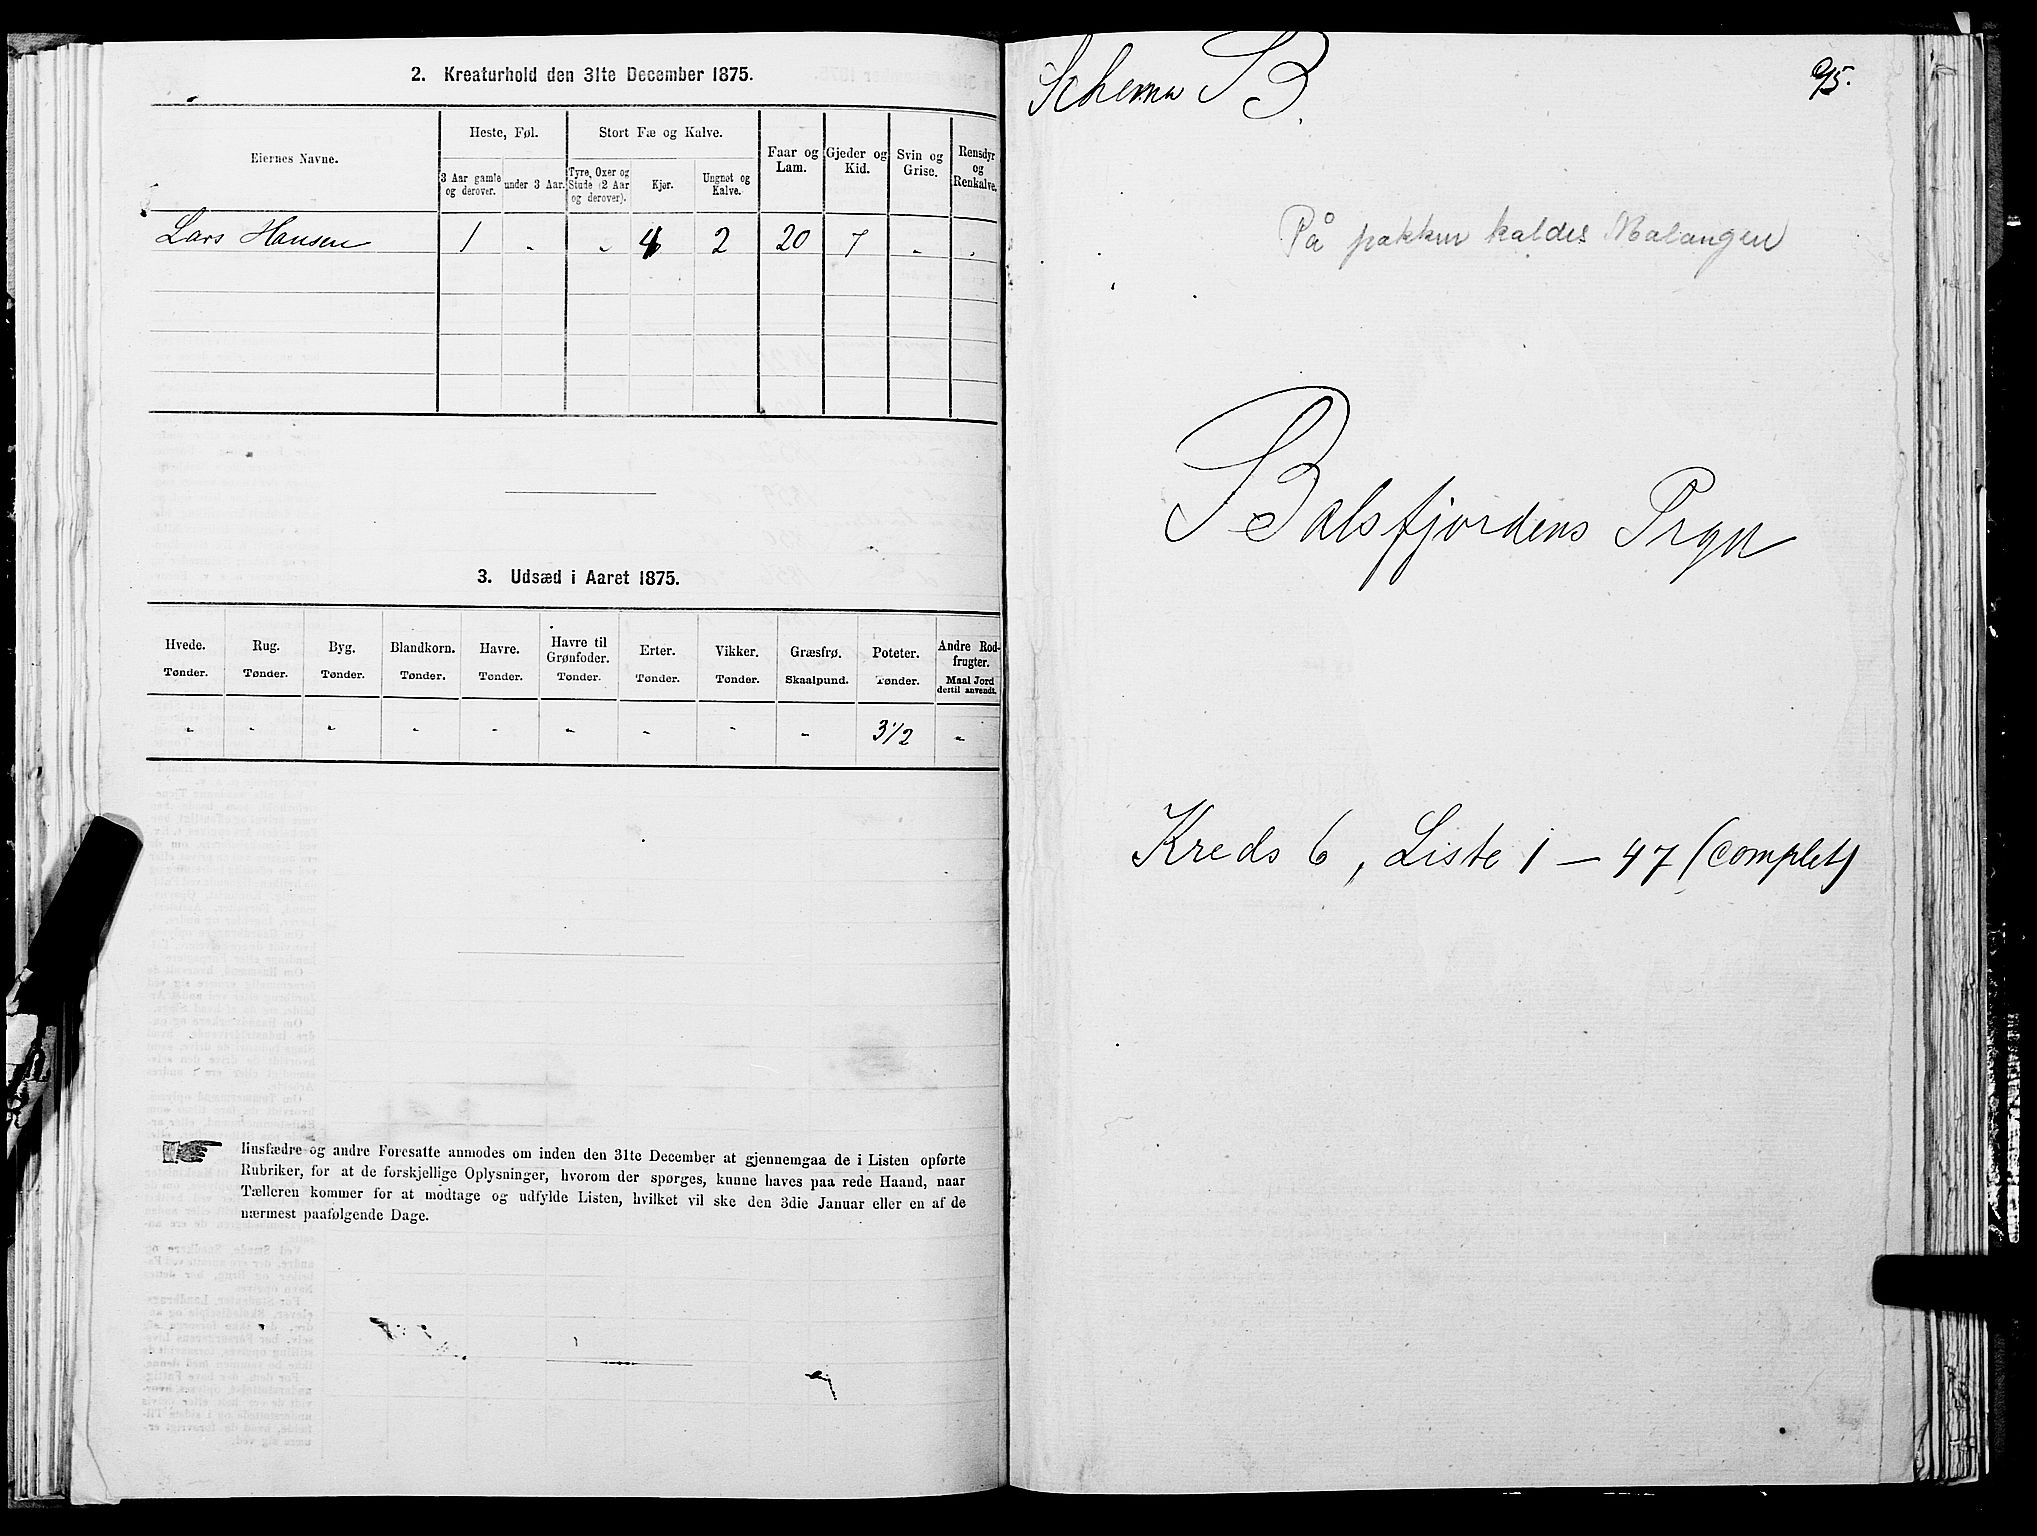 2. Kreaturhold den 31te December 1875.
Eiernes Navne.
Heste, Føl.
Stort Fæ og Kalve.
Faar og Lam.
Gjeder og Kid.
Svin og Grise.
Rensdyr og Renkalve.
3 Aar gamle og derover.
under 3 Aar.
Tyre, Oxer og Stude (2 Aar og derover).
Kjør.
Ungnøt og Kalve.
Lars Hansen 1 " " 4 2 20 7 " "
3. Udsæd i Aaret 1875.
Hvede. Rug. Byg. Blandkorn. Havre. Havre til Grønfoder. Erter. Vikker. Græsfrø. Poteter. Andre Rodfrugter.
Tønder. Tønder. Tønder. Tønder. Tønder. Tønder. Tønder. Tønder. Skaalpund. Tønder. Maal Jord dertil anvendt.
" " " " " " " " " 3 1/2 "
Husfædre og andre Foresatte anmodes om inden den 31te December at gjennemgaa de i Listen opførte
Rubriker, for at de forskjellige Oplysninger, hvorom der spørges, kunne haves paa rede Haand, naar
Tælleren kommer for at modtage og udfylde Listen, hvilket vil ske den 3die Januar eller en af de
nærmest paafølgende Dage.
Schema B.
På pakken kaldes Malangen
Balsfjordens Prgd
Kreds 6, Liste 1 – 47 (complet)